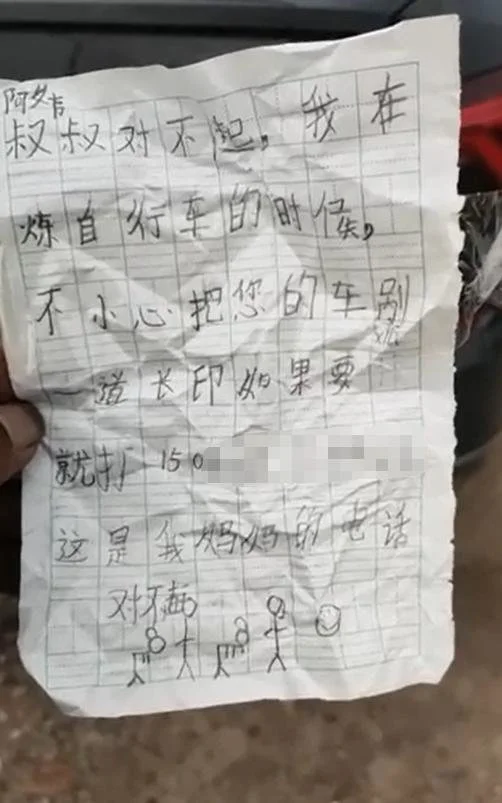 阿
叔叔对不起,我在
炼自行车的时候,
不小心把您的车剐
一道长印如果要
就打 150
这是我妈妈的电话
对不起